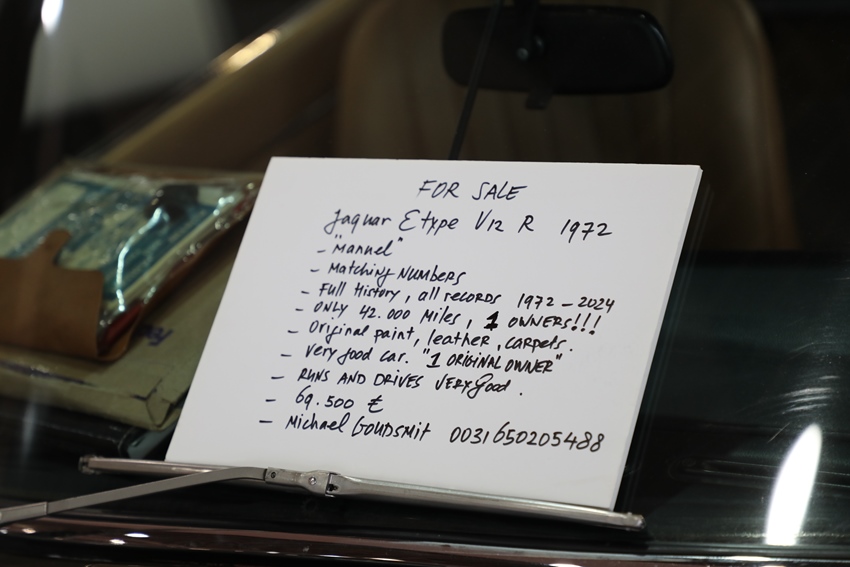 FOR SALE
Jaguar Etype V12 R 1972
- "Mannel"
- Matching NUMBERS
- Full History, all RECORDS 1972 - 2024
- ONLY 42.000 Miles, 1 OWNERS!!!
- Original paint, leather, carpets.
- Very good car. "1 ORIGINAL OWNER"
- RUNS AND DRIVES VERY Good.
- 69.500 £
- Michael GOUDSMIT 0031650205488